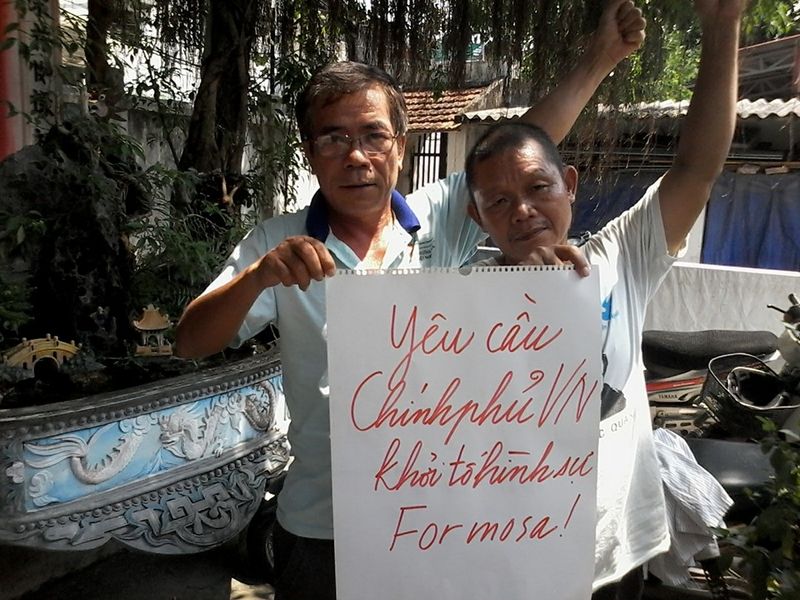 Yêu cầu
Chính phủ VN
khởi tố hình sự
Formosa!
YAMAHA